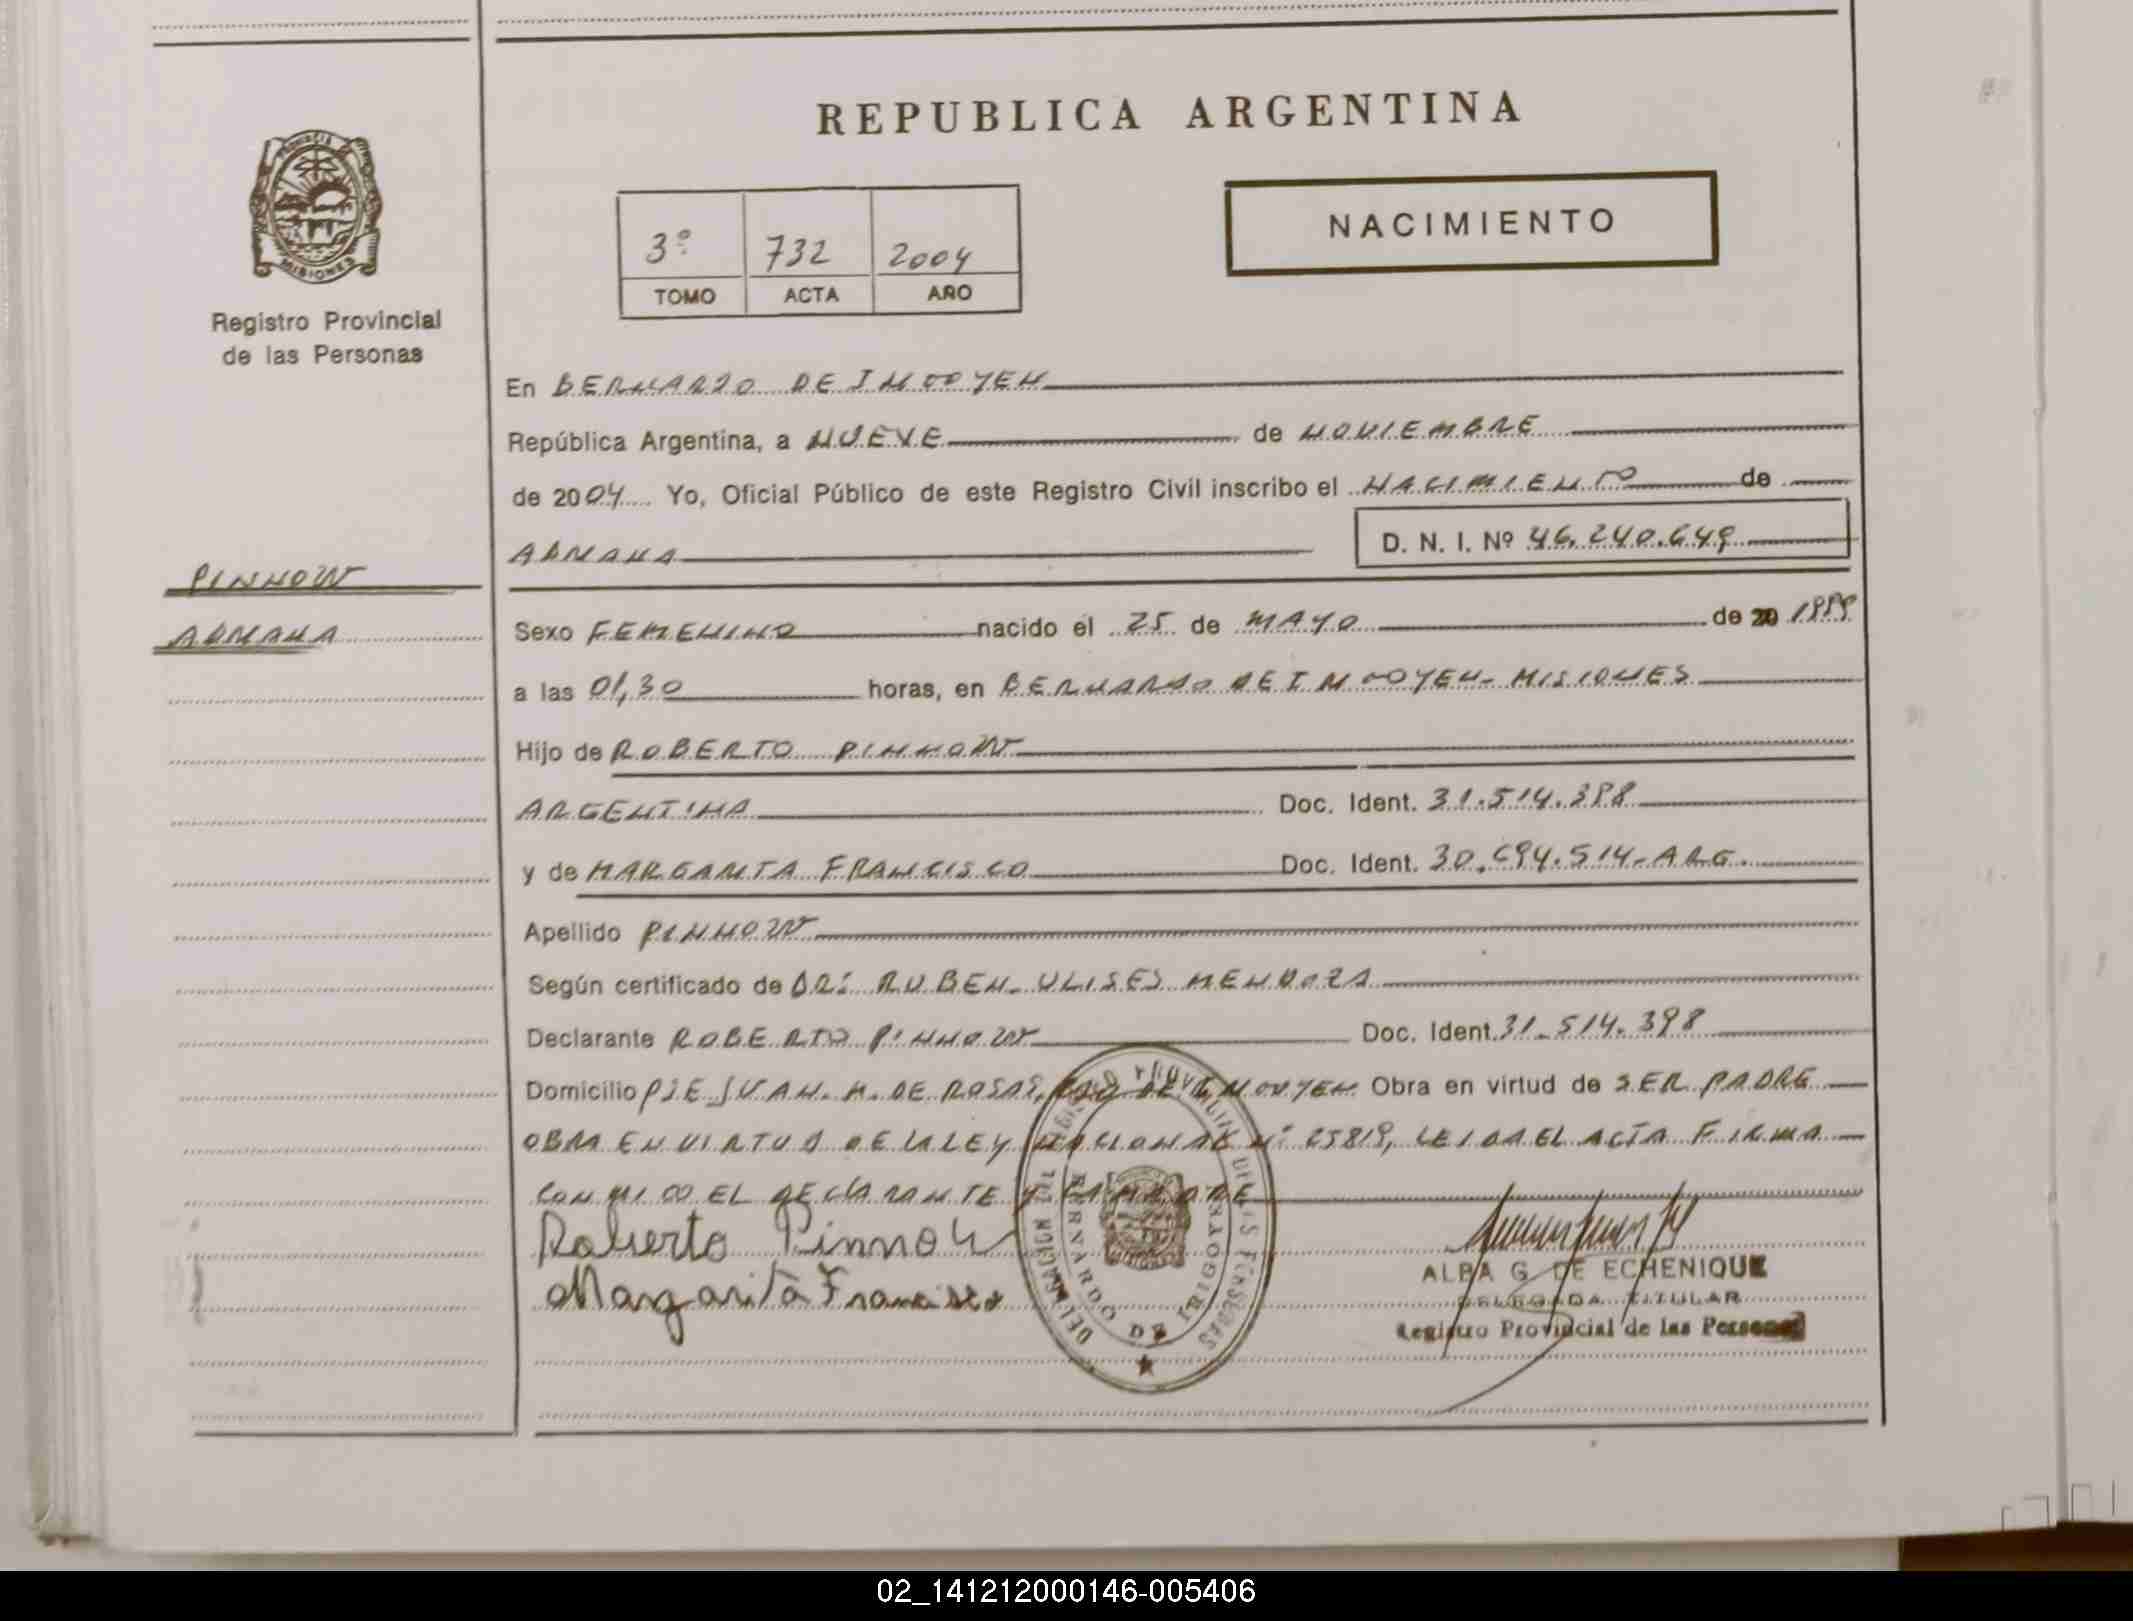 REPUBLICA ARGENTINA
PROVINCIA
MISIONES
Registro Provincial
de las Personas
NACIMIENTO
3º 732 2004
TOMO ACTA AÑO
En BERNARDO DE IRIGOYEN
República Argentina, a NUEVE de NOVIEMBRE
de 2004 Yo, Oficial Público de este Registro Civil inscribo el NACIMIENTO de
ADRIANA D. N. I. Nº 46.240.649
PINNOW
ADRIANA
Sexo FEMENINO nacido el 25 de MAYO de 20 1999
a las 01,30 horas, en BERNARDO DE IRIGOYEN - MISIONES
Hijo de ROBERTO PINNOW
ARGENTINA Doc. Ident. 31.514.398
y de MARGARITA FRANCISCO Doc. Ident. 30.694.514-ARG.
Apellido PINNOW
Según certificado de DR: RUBEN ULISES MENDOZA
Declarante ROBERTO PINNOW Doc. Ident. 31.514.398
Domicilio PJE JUAN. M. DE ROSAS, BDO DE IRIGOYEN Obra en virtud de SER PADRE
OBRA EN VIRTUD DE LA LEY NACIONAL Nº 25819, LEIDA EL ACTA FIRMA
CONMIGO EL DECLARANTE Y LA MADRE
Roberto Pinnow
Margarita Francisco
BERNARDO DE IRIGOYEN
ALBA G. DE ECHENIQUE
DELEGADA TITULAR
Registro Provincial de las Personas
02_141212000146-005406